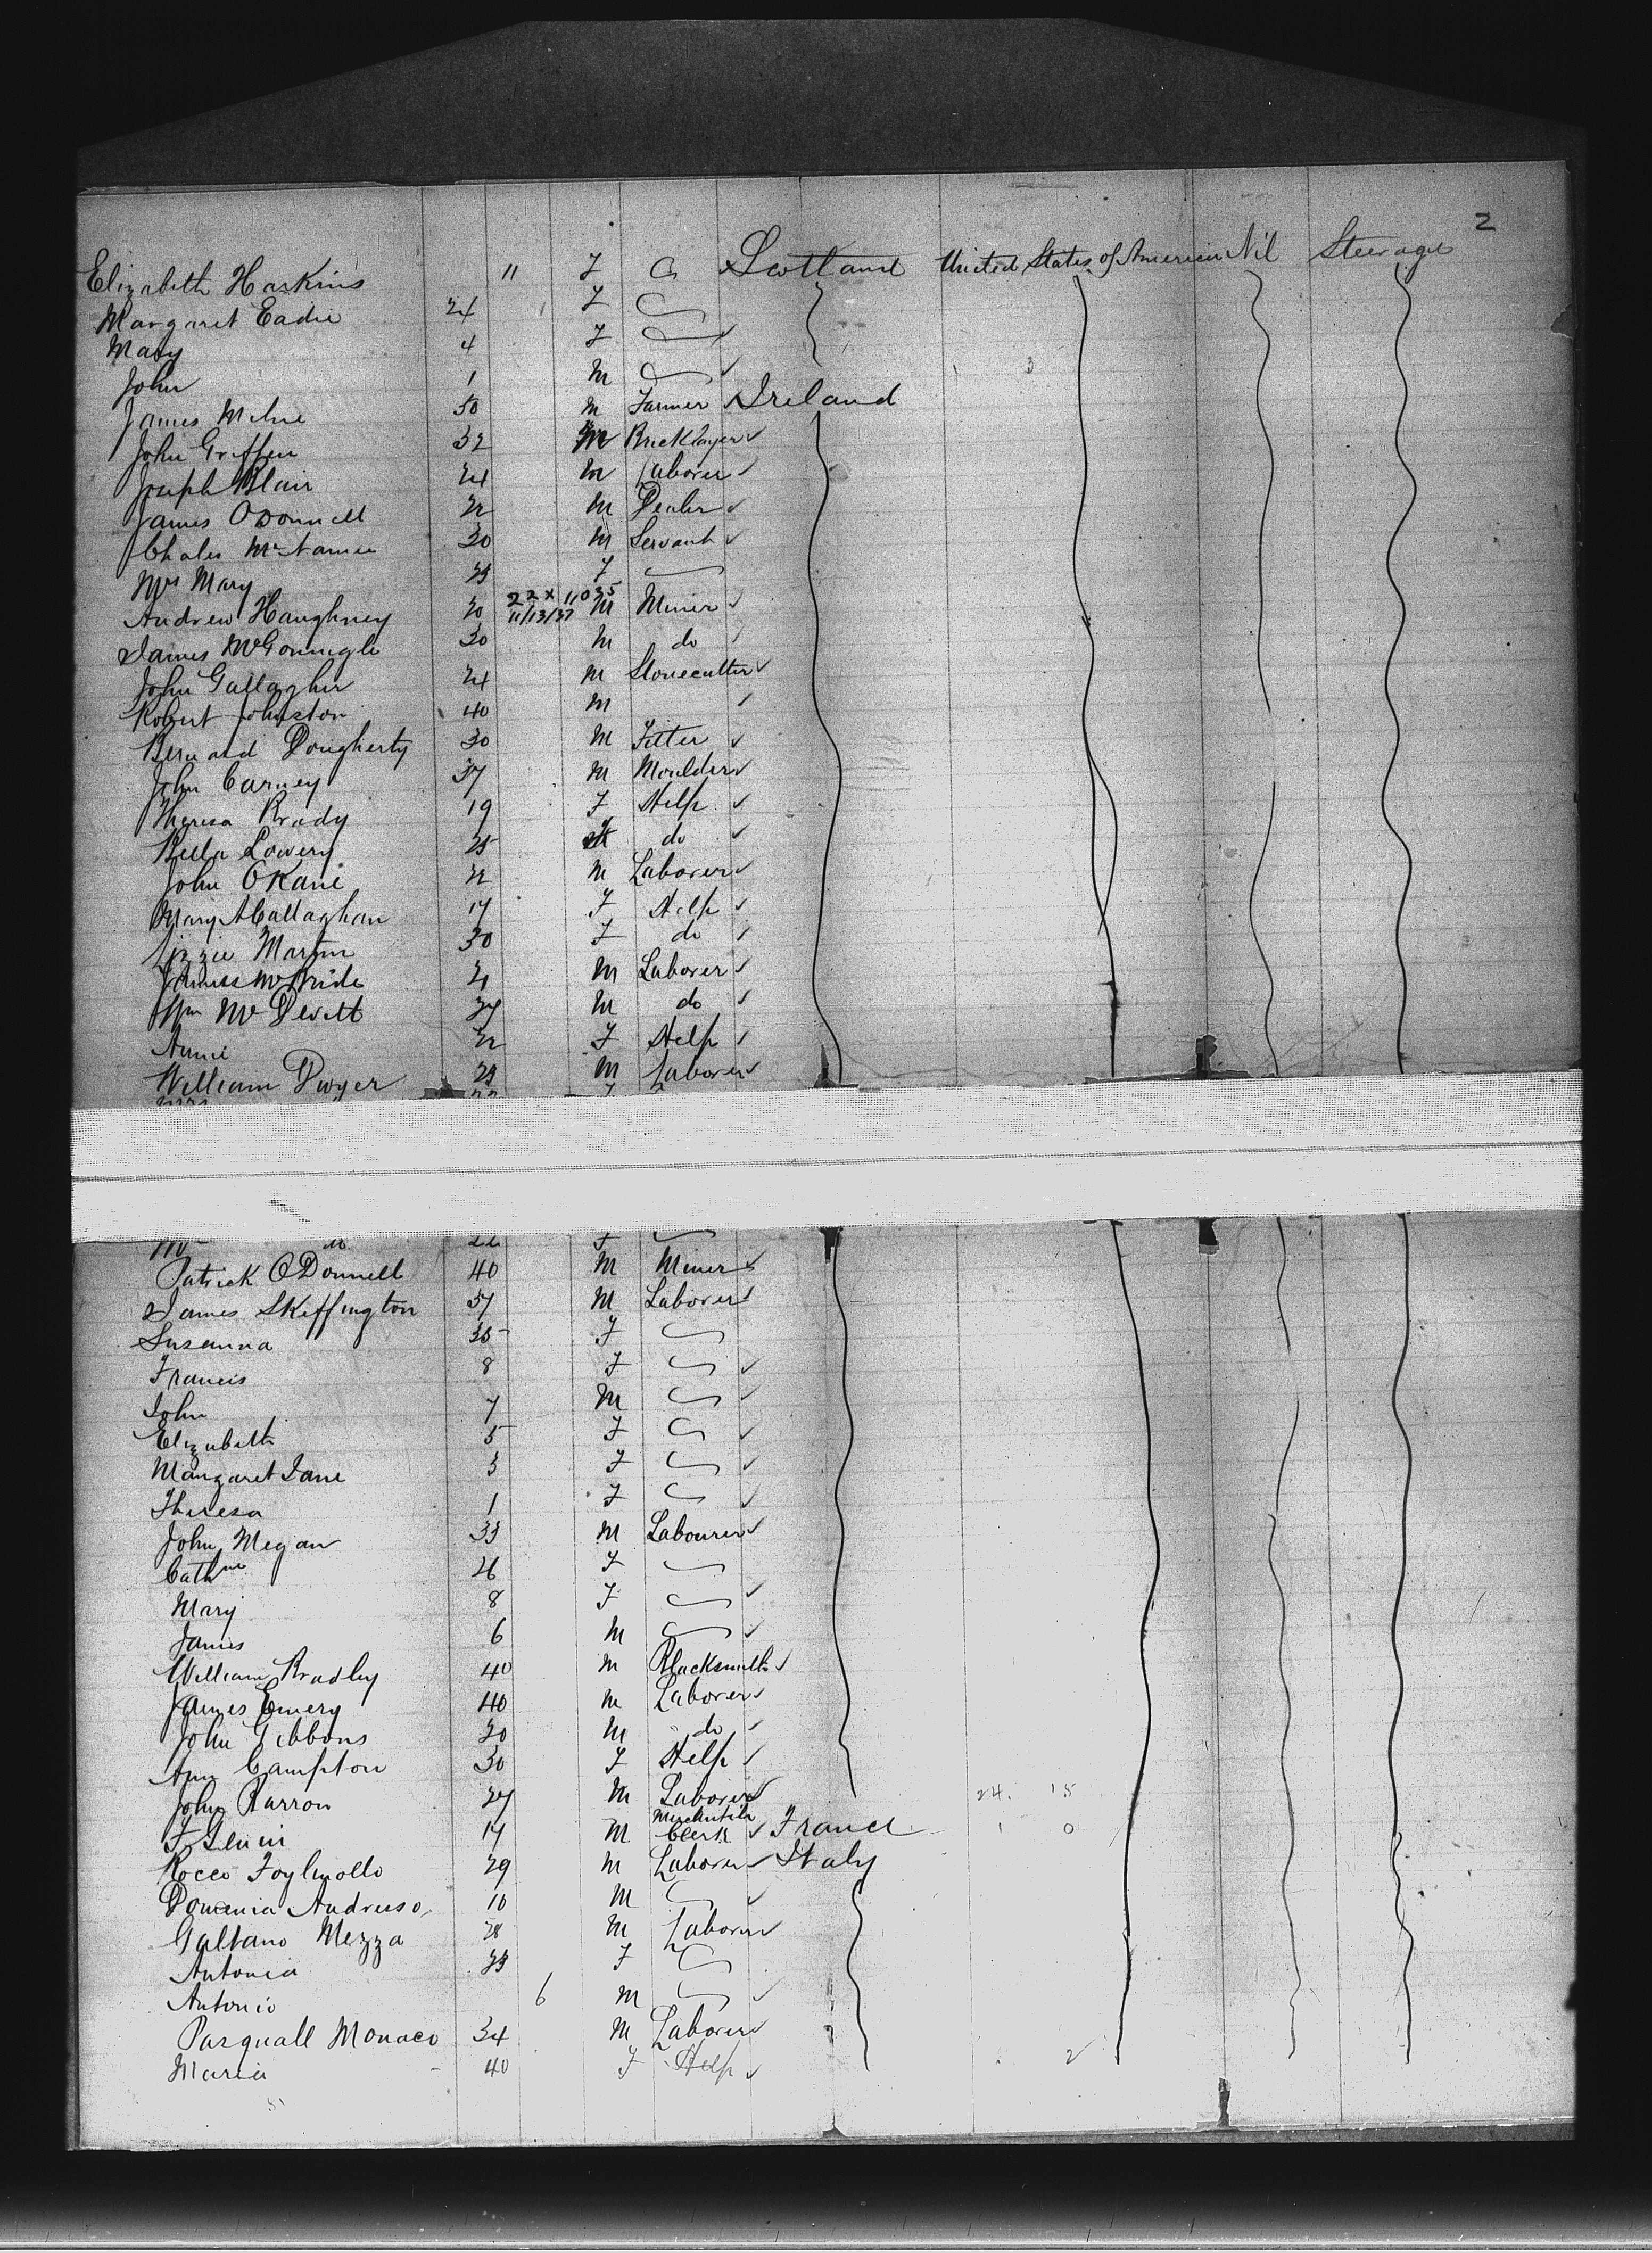 2
Elizabeth Haskins 11 F Scotland United States of America Nil Steerage
Margaret Eadie 24 F
Mary 4 F
John 1 M
James Milne 50 M Farmer Ireland
John Griffen 32 M Bricklayer
Joseph Blair 24 M Laborer
James ODonnell 22 M Dealer
Chales McNamee 30 M Servant
Mrs Mary F
22 x 11035
Andrew Haughney 11/13/37 M Miner
James McGonnigle 30 M do
John Gallagher 24 M Stonecutter
Robert Johnston 40 M
Bernard Dougherty 30 M Fitter
John Carney 37 M Moulder
Theresa Brady 19 F Help
Bella Lowery 25 F do
John OKane 22 M Laborer
Mary A Callaghan 17 F Help
Lizzie Martin 30 F do
James McBride 21 M Laborer
Wm McDevitt 27 M do
Annie 22 F Help
William Dwyer M Laborer
Mrs
do 22 F
Patrick ODonnell 40 M Miner
James Skeffington 37 M Laborer
Susanna 35 F
Francis 8 F
John 7 M
Elizabeth 5 F
Margaret Jane 3 F
Theresa 1 F
John Megan 33 M Labourer
Cathne 26 F
Mary 8 F
James 6 M
William Bradley 40 M Blacksmith
James Emery 40 M Laborer
John Gibbons 30 M do
Ann Campton 30 F Help
John Barron 27 M Laborer 24. 15
F 17 M Merchantile Clerk France 1 0
Rocco 29 M Laborer Italy
Domenia Andreuso 10 M
Galtano Mezza 28 M Laborer
Antonia F
Antonio 6 M
Pasquall Monaco 34 M Laborer
Maria 40 F Help 2